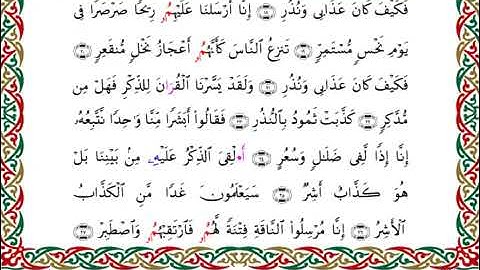 فَكَيْفَ كَانَ عَذَابِى وَنُذُرِ ١٨ إِنَّا أَرْسَلْنَا عَلَيْهِمُۥ رِيحًا صَرْصَرًا فِى
يَوْمِ نَحْسٍ مُّسْتَمِرٍّ ١٩ تَنزِعُ النَّاسَ كَأَنَّهُمُۥ أَعْجَازُ نَخْلٍ مُّنقَعِرٍ ٢٠
فَكَيْفَ كَانَ عَذَابِى وَنُذُرِ ٢١ وَلَقَدْ يَسَّرْنَا الْقُرَانَ لِلذِّكْرِ فَهَلْ مِن
مُّدَّكِرٍ ٢٢ كَذَّبَتْ ثَمُودُ بِالنُّذُرِ ٢٣ فَقَالُوا أَبَشَرًا مِّنَّا وَاحِدًا نَّتَّبِعُهُۥ
إِنَّا إِذًا لَّفِى ضَلَٰلٍ وَسُعُرٍ ٢٤ أَ•لْقِىَ الذِّكْرُ عَلَيْهِۦ مِن بَيْنِنَا بَلْ
هُوَ كَذَّابٌ أَشِرٌ ٢٥ سَيَعْلَمُونَ غَدًا مَّنِ الْكَذَّابُ
الْأَشِرُ ٢٦ إِنَّا مُرْسِلُوا النَّاقَةِ فِتْنَةً لَّهُمُۥ فَارْتَقِبْهُمُۥ وَاصْطَبِرْ ٢٧